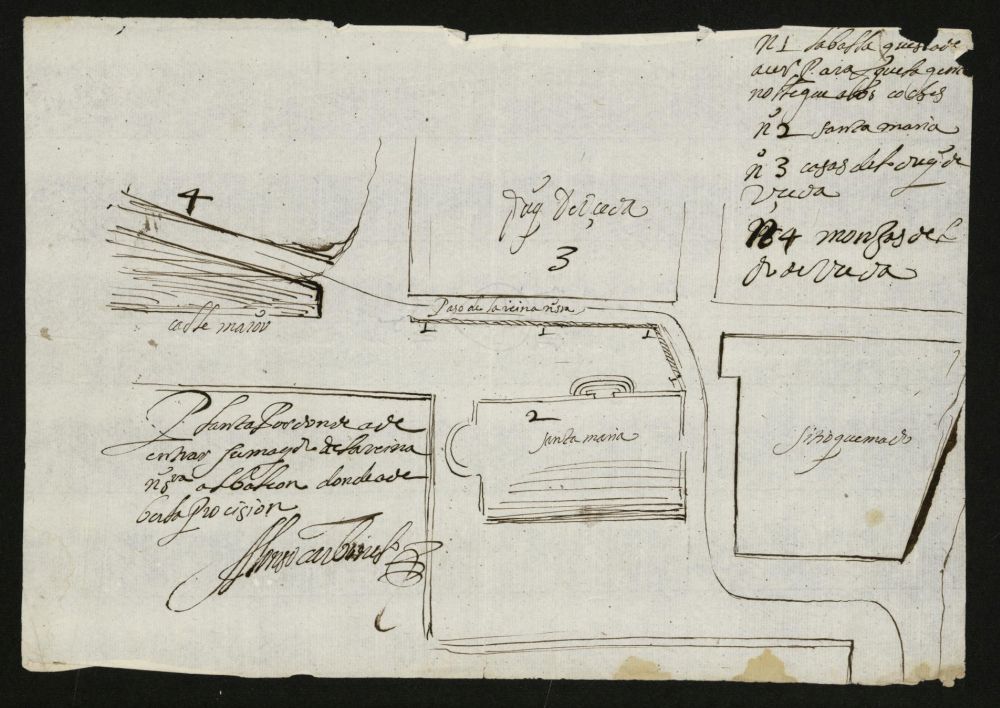 N 1 la balla questa de
acer Para que la gente
no llegue a los coches
nº 2 santa maria
nº 3 casas del duqᵉ de
Vceda
Nº 4 monjas del
dᵉ de Vceda
4
duqᵉ de Vceda
3
Paso de la reina nrᵃ srᵃ
1 1 1
calle maior
2
santa maria
sitio quemado
Planta Por donde a de
entrar su magᵈ de la reina
nrᵃ srᵃ al balcon donde a de
ber la Procision
Alonso Carbonel